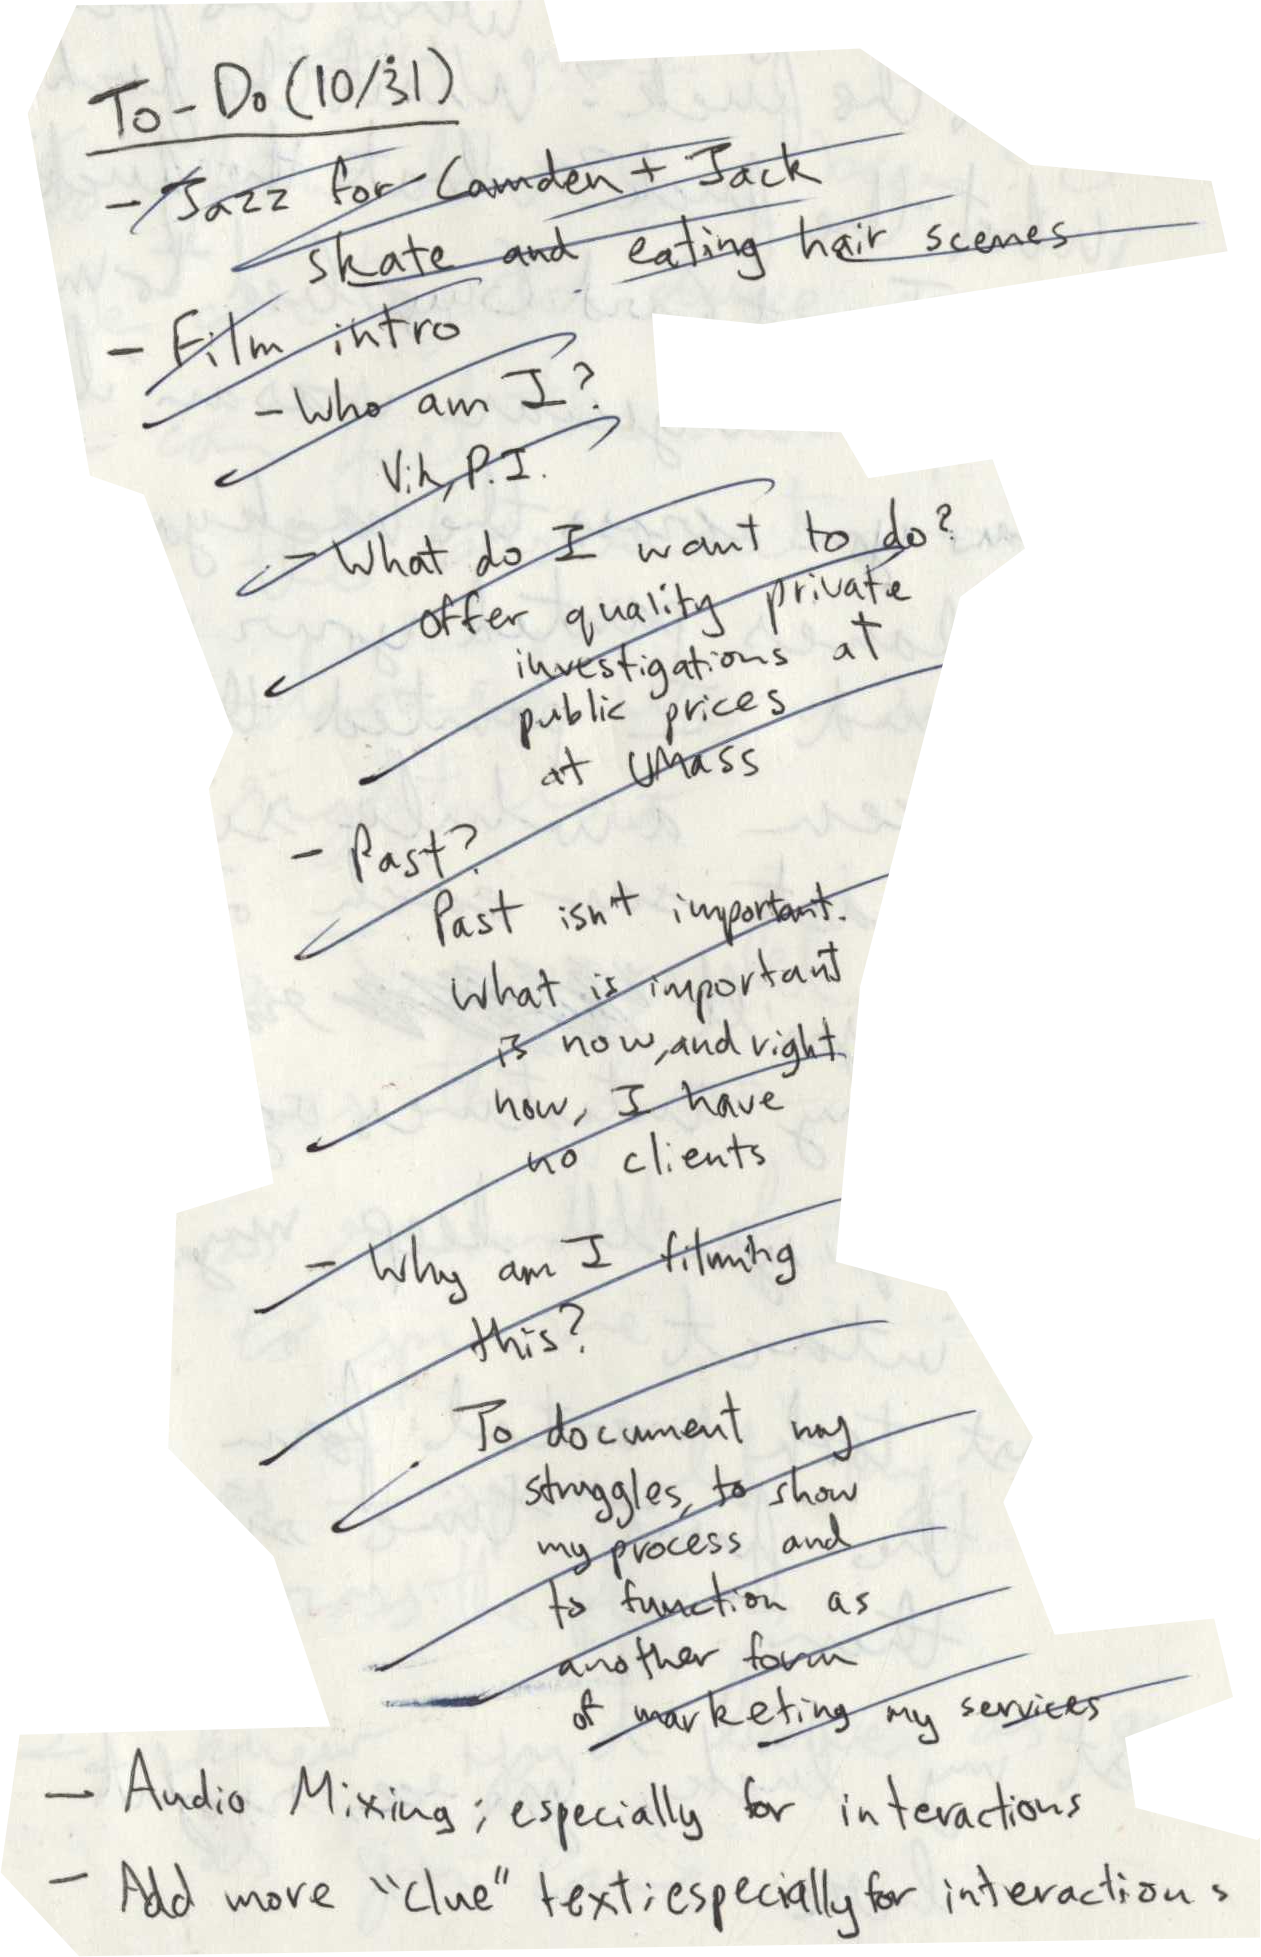 To-Do (10/31)
- Jazz for Camden + Jack
skate and eating hair scenes
- Film intro
- Who am I?
Vik, P.I.
- What do I want to do?
offer quality private
investigations at
public prices
at UMass
- Past?
Past isn't important.
What is important
is now, and right
now, I have
no clients
- Why am I filming
this?
To document my
struggles, to show
my process and
to function as
another form
of marketing my services
- Audio Mixing; especially for interactions
- Add more "clue" text; especially for interactions